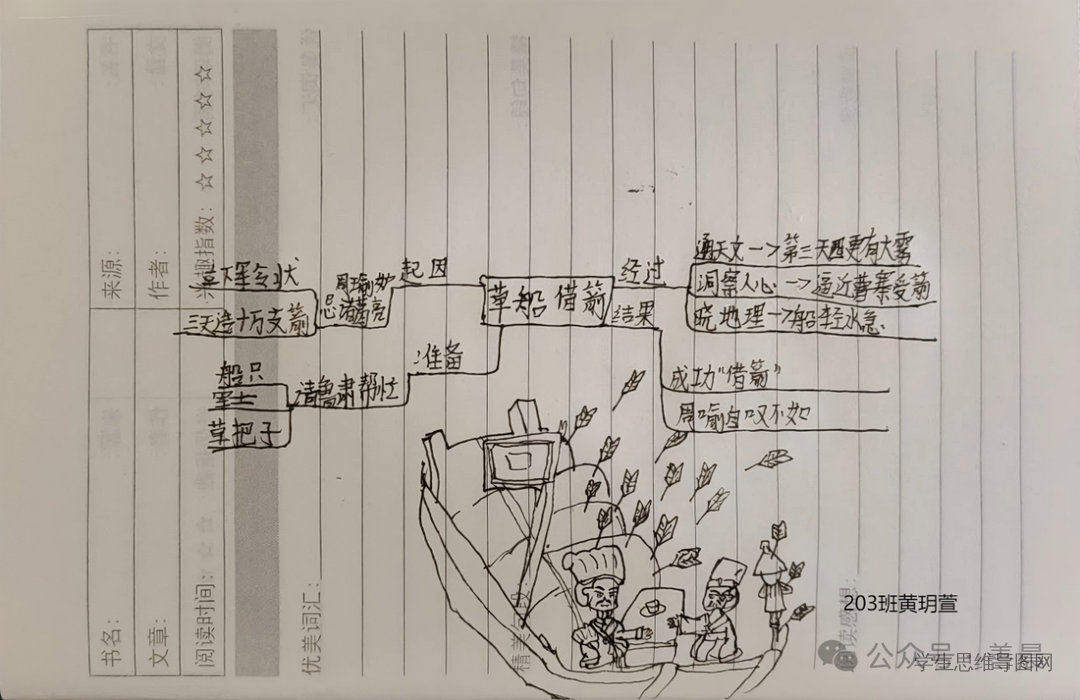 草船借箭
起因
周瑜妒
忌诸葛亮
立下军令状
三天造十万支箭
准备
请鲁肃帮忙
船只
军士
草把子
经过
通天文->第三天四更有大雾
洞察人心->逼近曹寨受箭
晓地理->船轻水急
结果
成功“借箭”
周喻自叹不如
书名:
来源:
文章:
作者:
阅读时间:
兴趣指数:☆☆☆☆☆
优美词汇:
203班黄玥萱
公众号
学生思维导图网